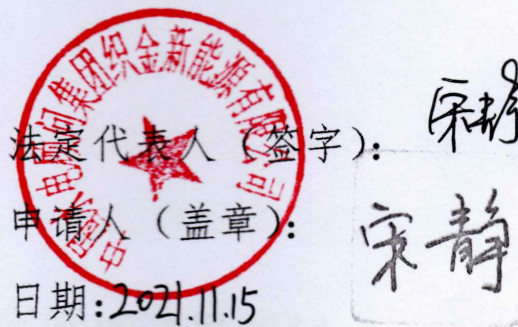 中国水电顾问集团织金新能源有限公司
法定代表人（签字）：宋静
申请人（盖章）：宋静
日期:2021.11.15